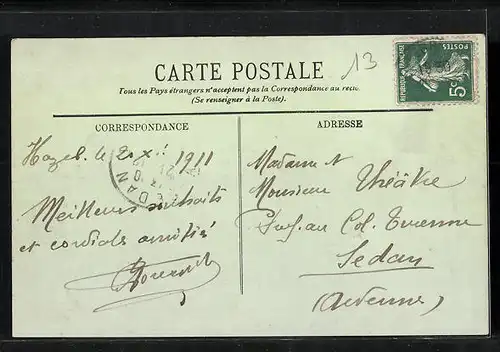 13
RÉPUBLIQUE FRANÇAISE
POSTES
5c
CARTE POSTALE
Tous les Pays étrangers n'acceptent pas la Correspondance au recto.
(Se renseigner à la Poste).
CORRESPONDANCE
le 2 1911
DAN
Meilleurs souhaits
et cordiale amitié
ADRESSE
Madame et
Monsieur Théâtre
au Col. Turenne
Sedan
(Ardennes)